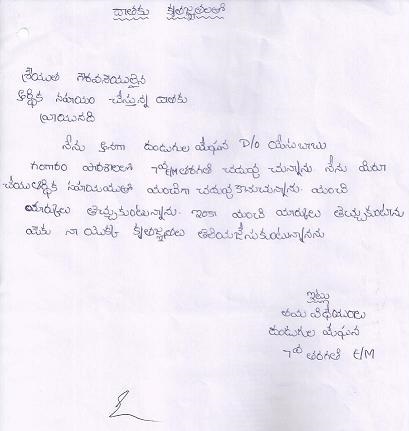 దాతకు కృతజ్ఞతలతో
శ్రీయుత గౌరవనీయులైన
ఆర్థిక సహాయం చేస్తున్న దాతకు
వ్రాయునది
నేను అనగా దుడుగుల మేఘన D/O యేసుబాబు
గంగారం పాఠశాలలో 7వE/M తరగతి చదువు చున్నాను నేను మీరు
చేయు ఆర్థిక సహాయముతో మంచిగా చదువు కొనుచున్నాను. మంచి
మార్కులు తెచ్చుకుంటున్నాను. ఇంకా మంచి మార్కులు తెచ్చుకుంటాను
మీకు నా యొక్క కృతజ్ఞతలు తెలియజేసుకుంటున్నాను
ఇట్లు
తమ విధేయులు
దుడుగుల మేఘన
7వ తరగతి E/M